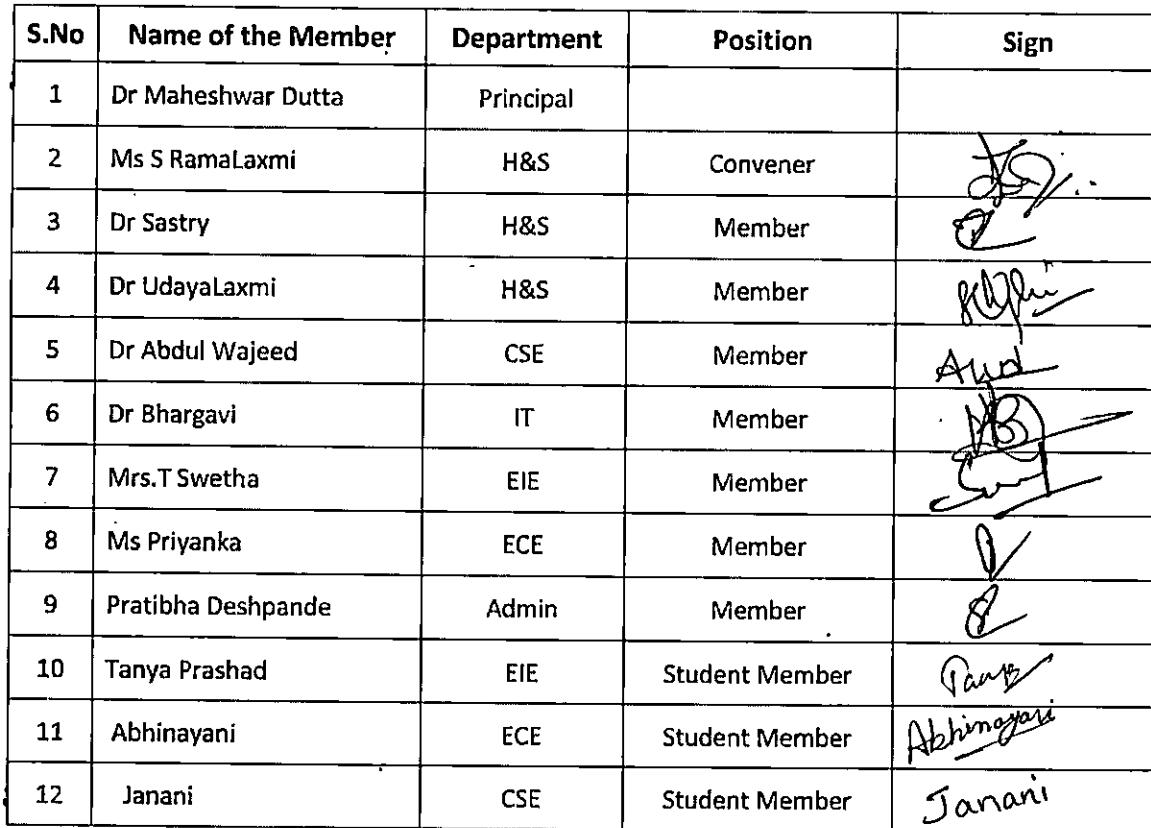 S.No Name of the Member Department Position Sign
1 Dr Maheshwar Dutta Principal
2 Ms S RamaLaxmi H&S Convener
3 Dr Sastry H&S Member
4 Dr UdayaLaxmi H&S Member
5 Dr Abdul Wajeed CSE Member
6 Dr Bhargavi IT Member
7 Mrs.T Swetha EIE Member
8 Ms Priyanka ECE Member
9 Pratibha Deshpande Admin Member
10 Tanya Prashad EIE Student Member
11 Abhinayani ECE Student Member Abhinayani
12 Janani CSE Student Member Janani